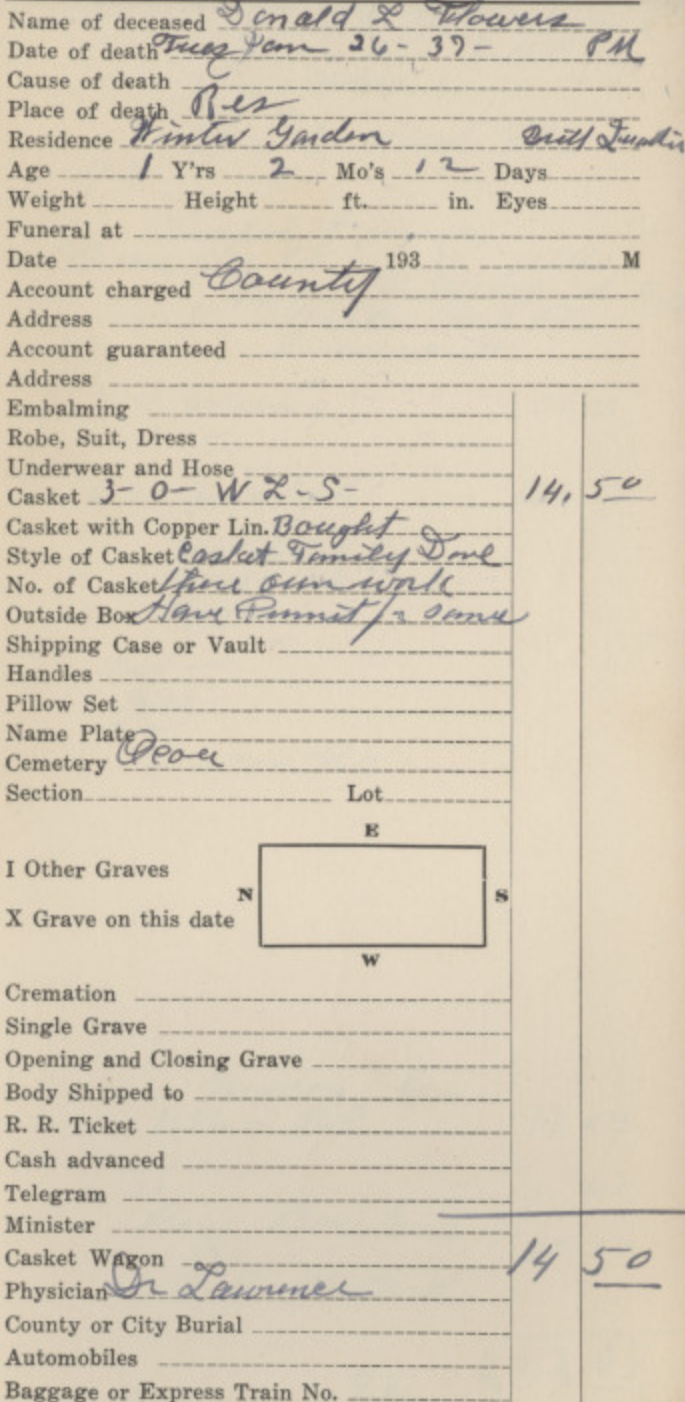 Name of deceased Donald L Flowers
Date of death Tues Jan 26-37- PM
Cause of death
Place of death Res
Residence Winter Garden
Age 1 Y'rs 2 Mo's 12 Days
Weight Height ft. in. Eyes
Funeral at
Date 193 M
Account charged County
Address
Account guaranteed
Address
Embalming
Robe, Suit, Dress
Underwear and Hose
Casket 3-0- W L-S- 14. 50
Casket with Copper Lin. Bought
Style of Casket Casket Family Done
No. of Casket there own work
Outside Box Have Permit for same
Shipping Case or Vault
Handles
Pillow Set
Name Plate
Cemetery Ocoee
Section Lot
E
I Other Graves
N S
X Grave on this date
W
Cremation
Single Grave
Opening and Closing Grave
Body Shipped to
R. R. Ticket
Cash advanced
Telegram
Minister
Casket Wagon 14 50
Physician Dr Lawrence
County or City Burial
Automobiles
Baggage or Express Train No.